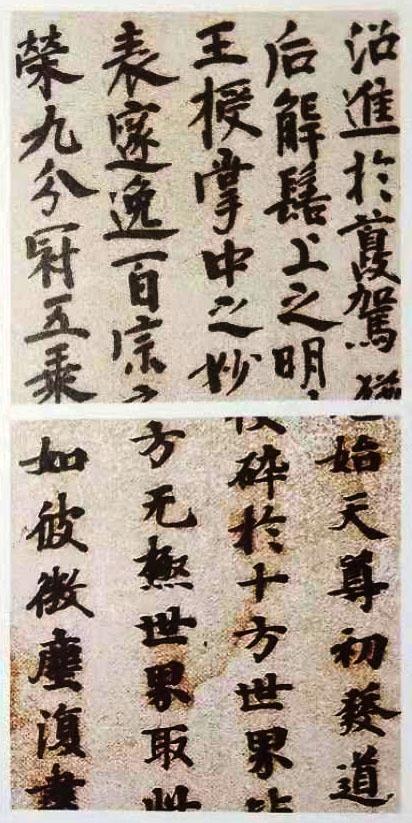 沿進於駕
后解髻上之明
王授掌中之妙
表邃逸百宗
榮九分冠五乘
始天尊初發道
碎於十方世界
方无極世界取
如彼微塵復盡